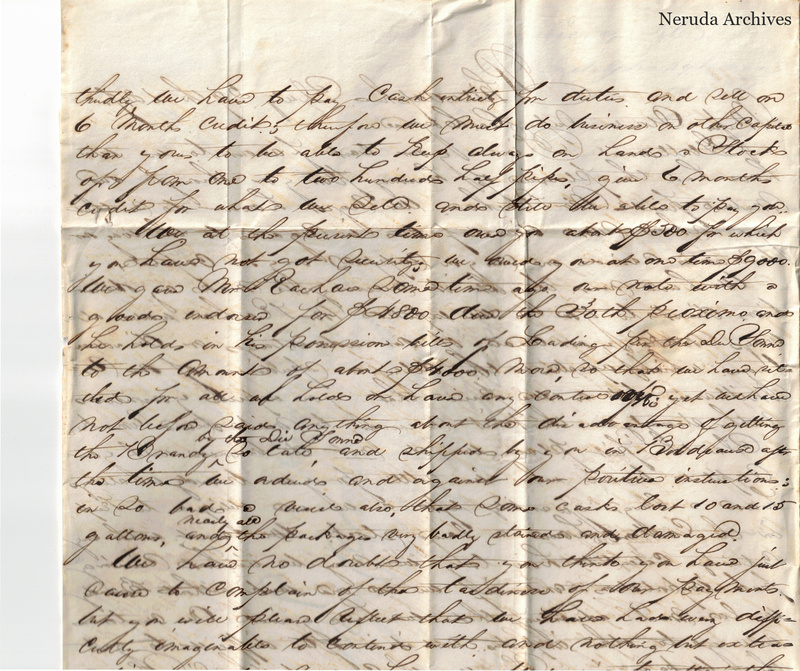 Neruda Archives
thirdly we have to pay Cash entirely for duties and sell on
6 Month Credit; therefore we must do business on other Capital
than yours to be able to keep always on hands a Stock
of from one to two hundred half pipes, give 6 months
credit for what we sell and still be able to pay you.
We at the present time owe you about $500 for which
you have not got security, we owed you at one time $9000.
We gave some time ago our note with a
goods endorser for $4800 due the 30th proximo and
he holds in his possession bills of Lading per the
to the amount of about $4000 More, so that we have
for all we yet we have
not before said anything about the disadvantage of getting
the Brandy so late and shipped by you in Bordeaux after
by the
the time we ordered and against our positive instructions;
in so bad a also, that some casks lost 10 and 15
gallons, and the packages very badly stained and damaged.
nearly all
We have no doubt that you think you have just
cause to complain of the tardiness of our payments,
but you will please reflect that we have had every diffi-
culty imaginable to contend with and nothing but